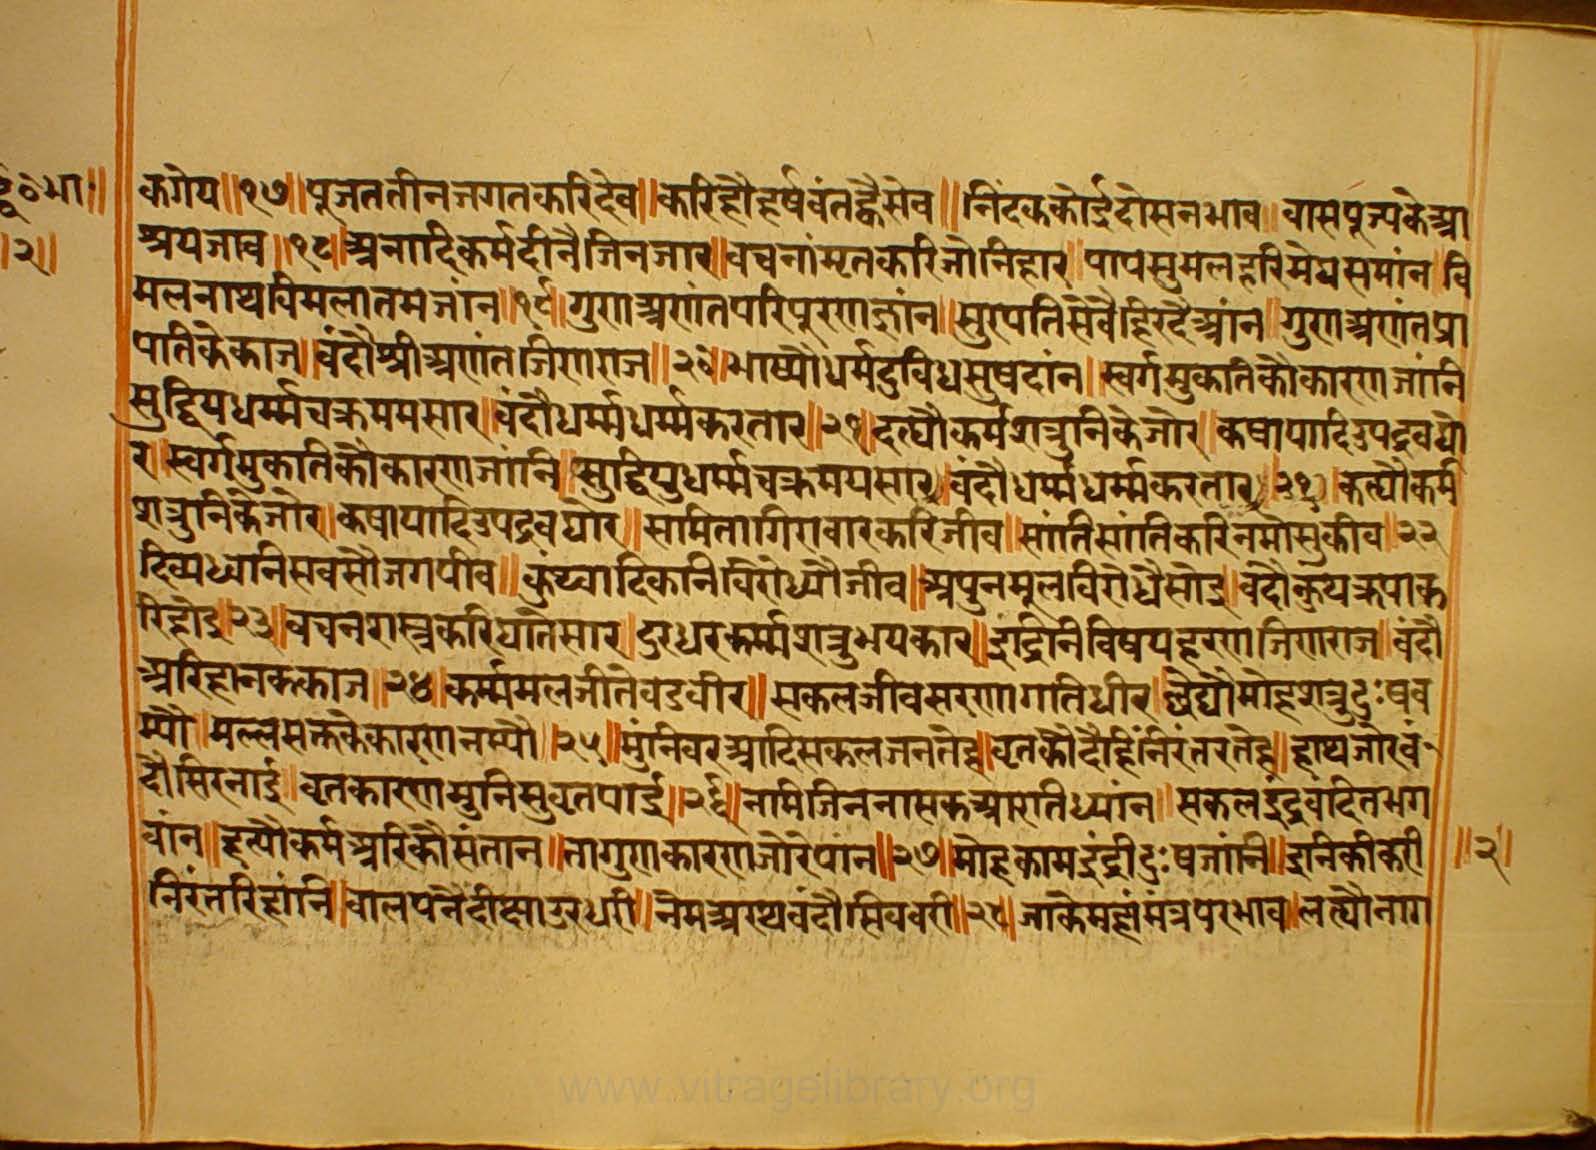 कगेय ॥ १७ ॥ पुजततीनजगतकरिदेव ॥ करिहौहर्षवंतह्वैसेव ॥ निंदककोईदोसनभाव ॥ वासपूज्यकेआ
॥ २ ॥
श्रयजाव ॥ १८ ॥ अनादिकर्मदीनैजिनजार ॥ वचनांमृतकरिजोनिहार ॥ पापसुमलहरिमेघसमांन ॥ वि
मलनाथविमलातमजांन ॥ १९ ॥ गुणअणंतपरिपुरणज्ञांन ॥ सुरपतिसेवैहिरदैआंन ॥ गुणअणंतप्रा
पतिकेकाज ॥ वंदौश्रीअणंतजिणराज ॥ २० ॥ भाष्यौधर्मदुविधसुषदांन ॥ स्वर्गमुकतिकौकारणजांनि
सुद्वियधर्म्मचक्रममसार ॥ वंदौधर्म्मधर्म्मकरतार ॥ २१ ॥ हत्यौकर्मशत्रुनिकेजोर ॥ कषायादिउपद्रवघो
र ॥ स्वर्गमुकतिकौकारणजांनि ॥ सुद्वियुधर्म्मचक्रमयसार ॥ वंदौधर्म्मधर्म्मकरतार ॥ २१ ॥ हत्यौकर्म
शत्रुनिकेजोर ॥ कषायादिउपद्रवघोर ॥ सामितागिरावारकरिजीव ॥ सांतिसांतिकरिनमौसुकीव ॥ २२
दिव्यध्वनिसवसौजगपीव ॥ कुंथ्वादिकनिविरोध्यौजीव ॥ अपुनमुलविरोधैसोइ ॥ वंदौकुंथक्रपाक
रिहोइ ॥ २३ ॥ वचनरास्त्रकरिघातैसार ॥ दुरधरकर्म्मशत्रुभयकार ॥ इंद्रिनिविषयहरणजिणराज ॥ वंदौ
अरिहानककाज ॥ २४ ॥ कर्म्ममलजीतेवडवीर ॥ सकलजीवसरणागतिधीर ॥ छेद्यौमोहशत्रुदुःषव
म्यौ ॥ मल्लसक्तकैकारणनम्यौ ॥ २५ ॥ मुंनिवरआदिसकलजनतेह ॥ वृतकौदौहिंनिरंतरतेह ॥ हाथजोरवं
दौसिरनाई ॥ वृतकारणमुनिसुवृतपाई ॥ २६ ॥ नामिजिननासकआरतिध्यांन ॥ सकलइंद्रवंदितभग
वांन ॥ हत्यौकर्मअरिकौसंतान ॥ तागुणकारणजोरेपांन ॥ २७ ॥ मोहकामइंद्रीदुःषजांनि ॥ इनिकीकरी
॥ २ ॥
निरंतरिहांनि ॥ वालपनैदीक्षाउरधरी ॥ नेमअरथवंदौसिववरी ॥ २८ ॥ जाकैमहांमंत्रपरभाव ॥ लत्यौनाग
www.vitragelibrary.org